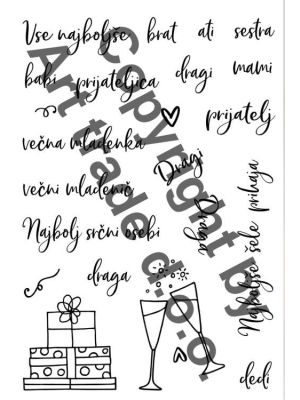 Vse najboljše brat ati sestra
babi prijateljica dragi mami
prijatelj
večna mladenka
Dragi
večni mladenič
Draga
Najboljše šele prihaja
Najbolj srčni osebi
draga
dedi
Copyright by
Art trade d.o.o.